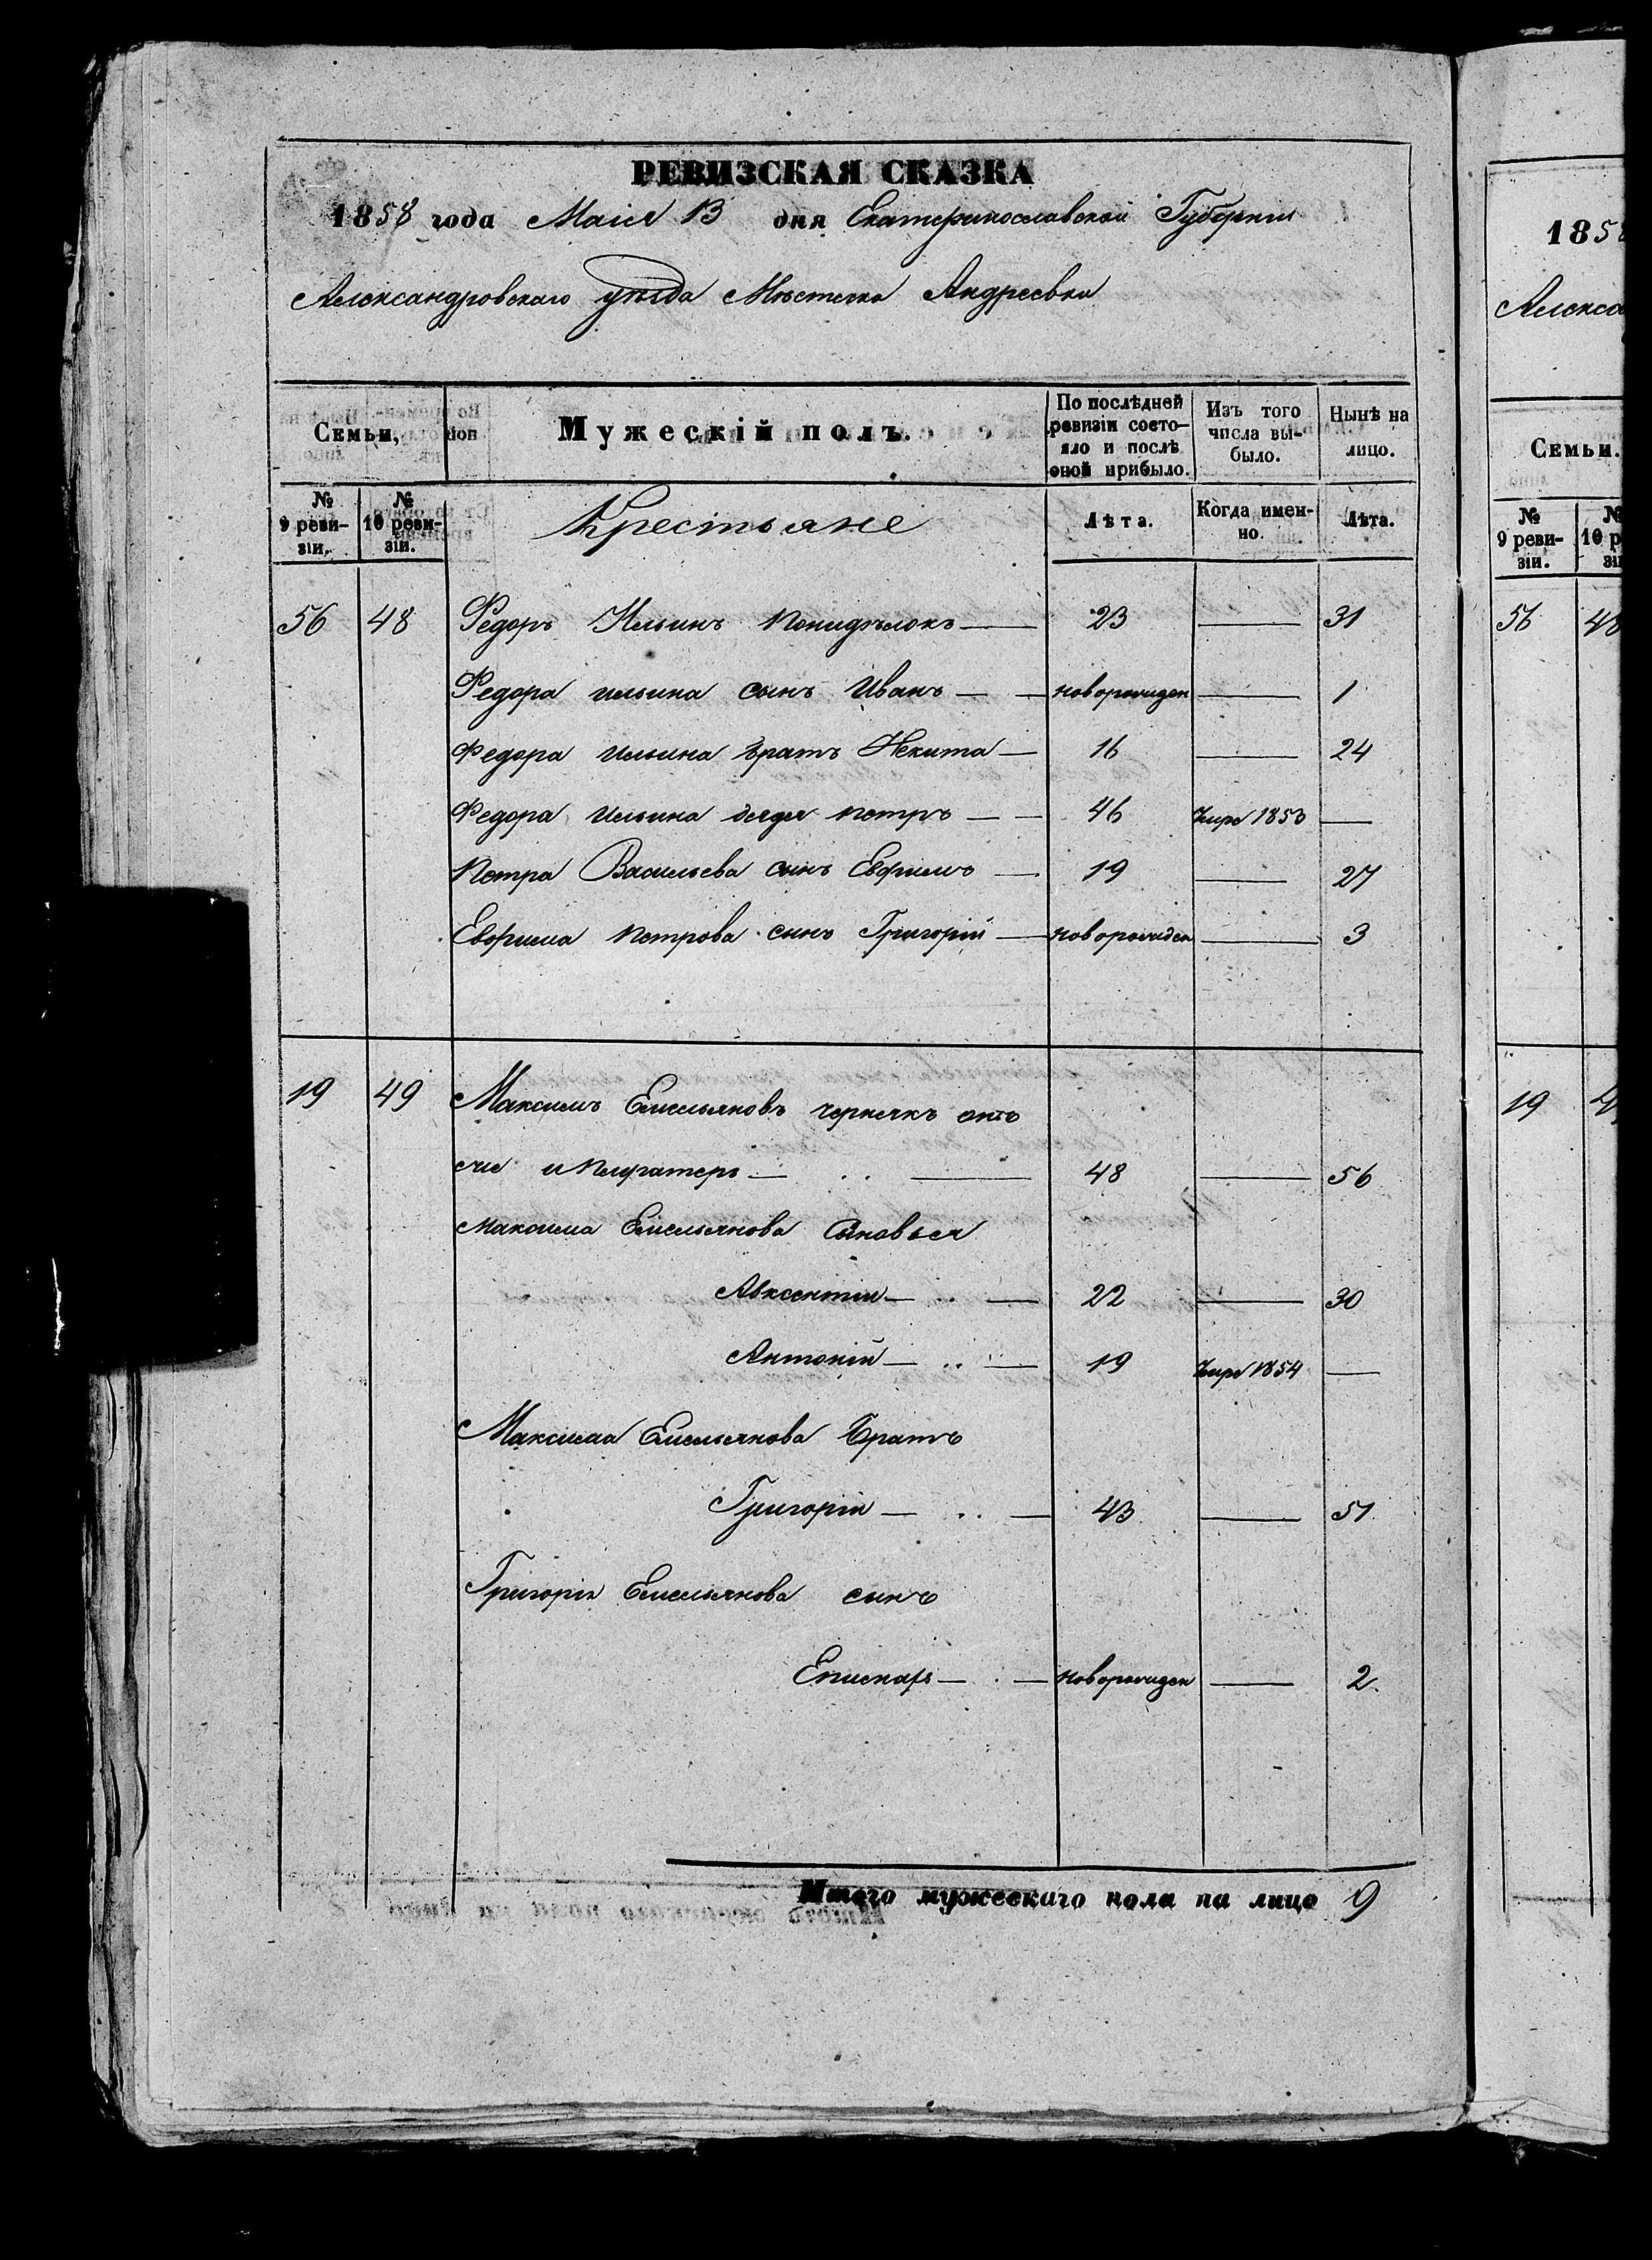 РЕВИЗСКАЯ СКАЗКА
1858 года Маія 13 дня Екатеринославской Губерніи
Александровскаго уѣзда Мѣстечка Андреевки
Семьи,
Мужескій полъ.
По послѣдней ревизіи состояло и послѣ оной прибыло.
Изъ того числа выбыло.
Нынѣ на лицо.
№ 9 ревизіи.
№ 10 ревизіи.
Крестьяне
Лѣта.
Когда именно.
Лѣта.
56 48 Федоръ Ильинъ Понидѣлокъ — 23 — 31
Федора ильина сынъ Иванъ — новорожден — 1
Федора ильина братъ Никита — 16 — 24
Федора ильина дядя петръ — 46 Умре 1853 —
Петра Васильева сынъ Ефимъ — 19 — 27
петрова сынъ Григорій — новорожден — 3
19 49 Максимъ Емельяновъ чернякъ онъ
же 48 — 56
Максима Емельянова Сыновья
Авксентій — 22 — 30
Антоній — 19 Умре 1854 —
Максима Емельянова Братъ
Григорій — 43 — 51
Григорія Емельянова сынъ
новорожден — 2
Итого мужескаго пола на лицо 9
185
Алекса
Семьи.
№ 9 ревизіи.
№ 10 р
56 48
19 4